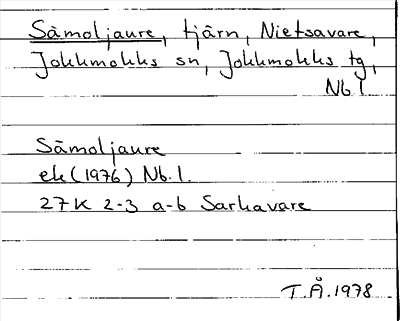 Sämoljaure, tjärn, Nietsavare,
Jokkmokks sn, Jokkmokks tg,
Nb.l.
Sämoljaure
ek (1976) Nb.l.
27K 2-3 a-b Sarkavare
T.Å. 1978